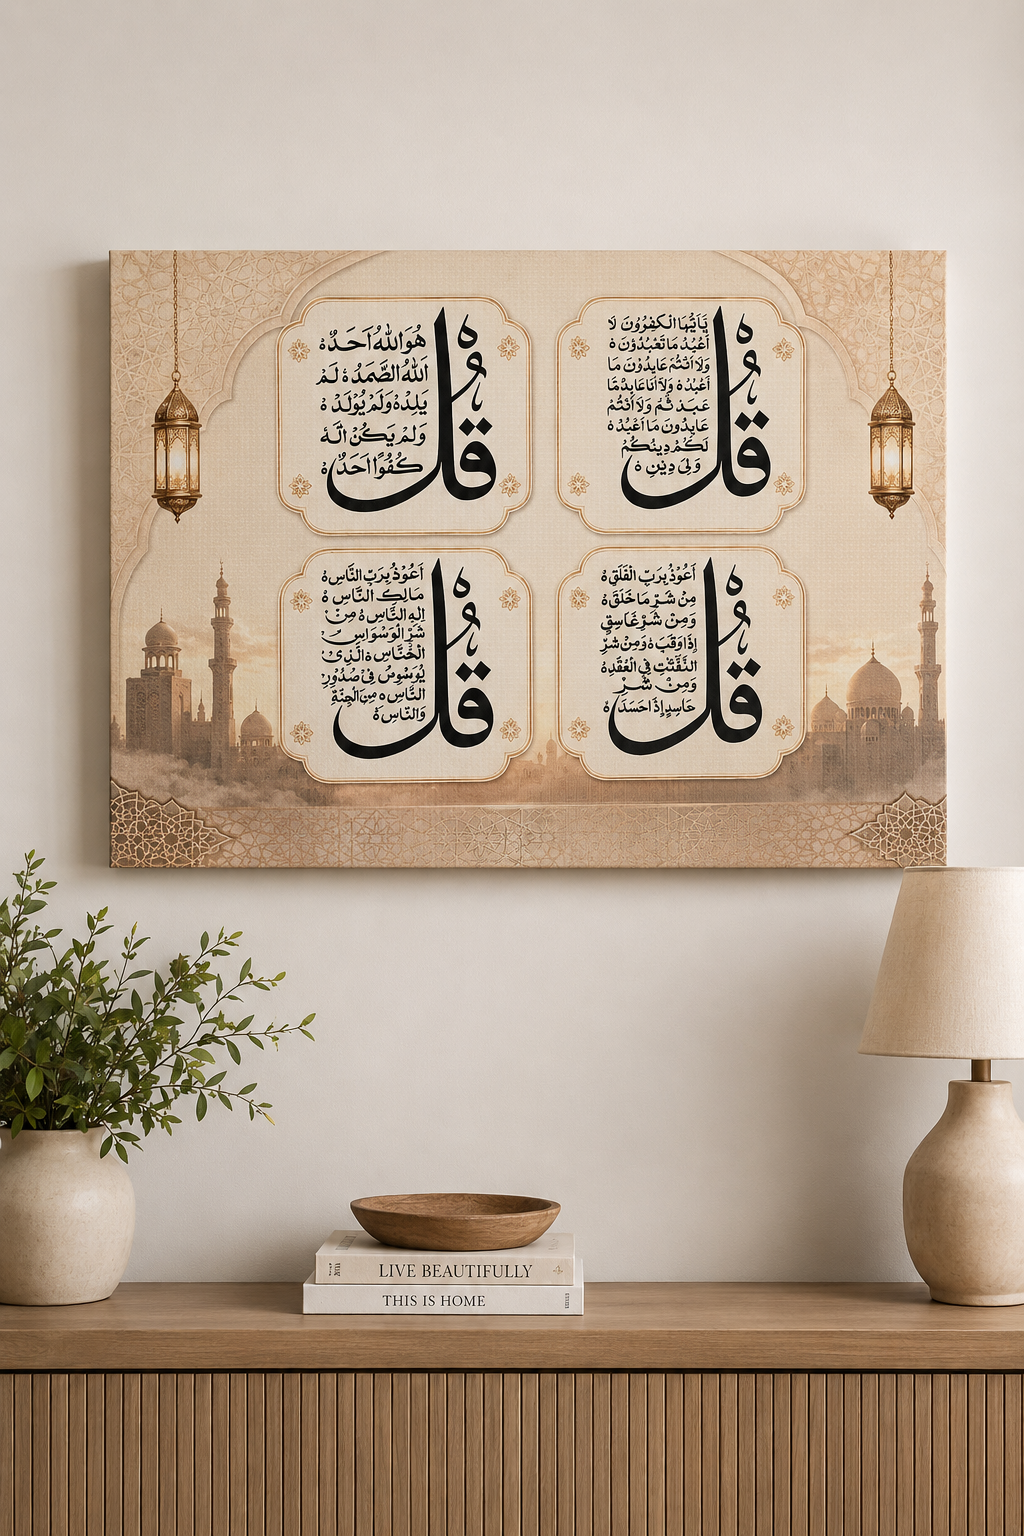 قُلْ
يَٰٓأَيُّهَا الْكٰفِرُوْنَ لَا
أَعْبُدُ مَا تَعْبُدُوْنَ ه
وَلَا أَنْتُمْ عَابِدُوْنَ مَا
أَعْبُدُ ه وَلَا أَنَا عَابِدٌ مَّا
عَبَدْتُّمْ وَلَا أَنْتُمْ
عَابِدُوْنَ مَا أَعْبُدُ ه
لَكُمْ دِيْنُكُمْ
وَلِيَ دِيْنِ ه
قُلْ
هُوَ اللّٰهُ اَحَدٌ ه
اَللّٰهُ الصَّمَدُ ه لَمْ
يَلِدْ ه وَلَمْ يُوْلَدْ ه
وَلَمْ يَكُنْ لَّهٗ
كُفُوًا اَحَدٌ ه
قُلْ
اَعُوْذُ بِرَبِّ الْفَلَقِ ه
مِنْ شَرِّ مَا خَلَقَ ه
وَمِنْ شَرِّ غَاسِقٍ
إِذَا وَقَبَ ه وَمِنْ شَرِّ
النَّفّٰثٰتِ فِي الْعُقَدِ ه
وَمِنْ شَرِّ
حَاسِدٍ إِذَا حَسَدَ ه
قُلْ
اَعُوْذُ بِرَبِّ النَّاسِ ه
مَالِكِ النَّاسِ ه
اِلٰهِ النَّاسِ ه مِنْ
شَرِّ الْوَسْوَاسِ
الْخَنَّاسِ ه الَّذِيْ
يُوَسْوِسُ فِيْ صُدُوْرِ
النَّاسِ ه مِنَ الْجِنَّةِ
وَالنَّاسِ ه
LIVE BEAUTIFULLY
THIS IS HOME